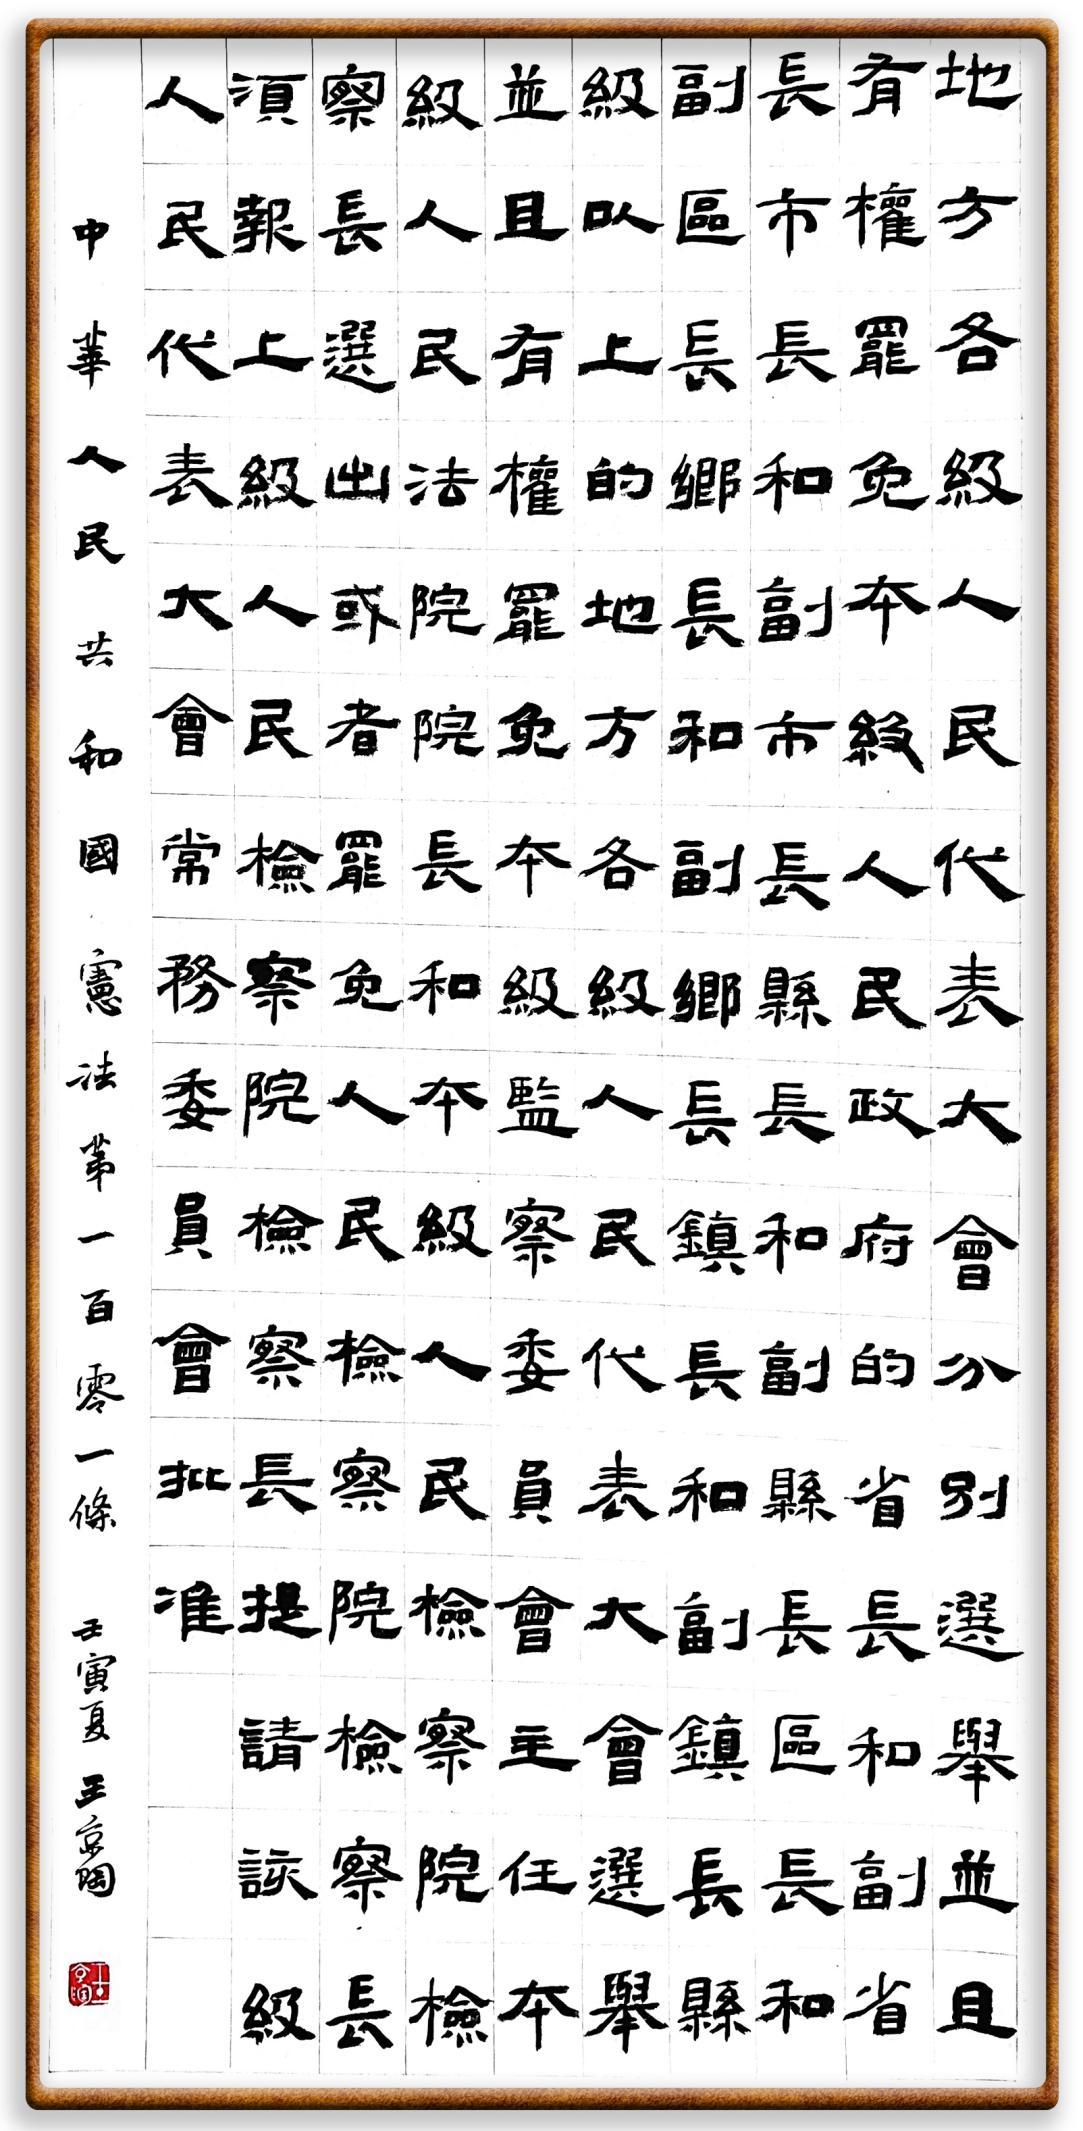 地方各級人民代表大會分別選舉並且
有權罷免本級人民政府的省長和副省
長市長和副市長縣長和副縣長區長和
副區長鄉長和副鄉長鎮長和副鎮長縣
級以上的地方各級人民代表大會選舉
並且有權罷免本級監察委員會主任本
級人民法院院長和本級人民檢察院檢
察長選出或者罷免人民檢察院檢察長
須報上級人民檢察院檢察長提請該級
人民代表大會常務委員會批准
中華人民共和國憲法第一百零一條 壬寅夏 王京